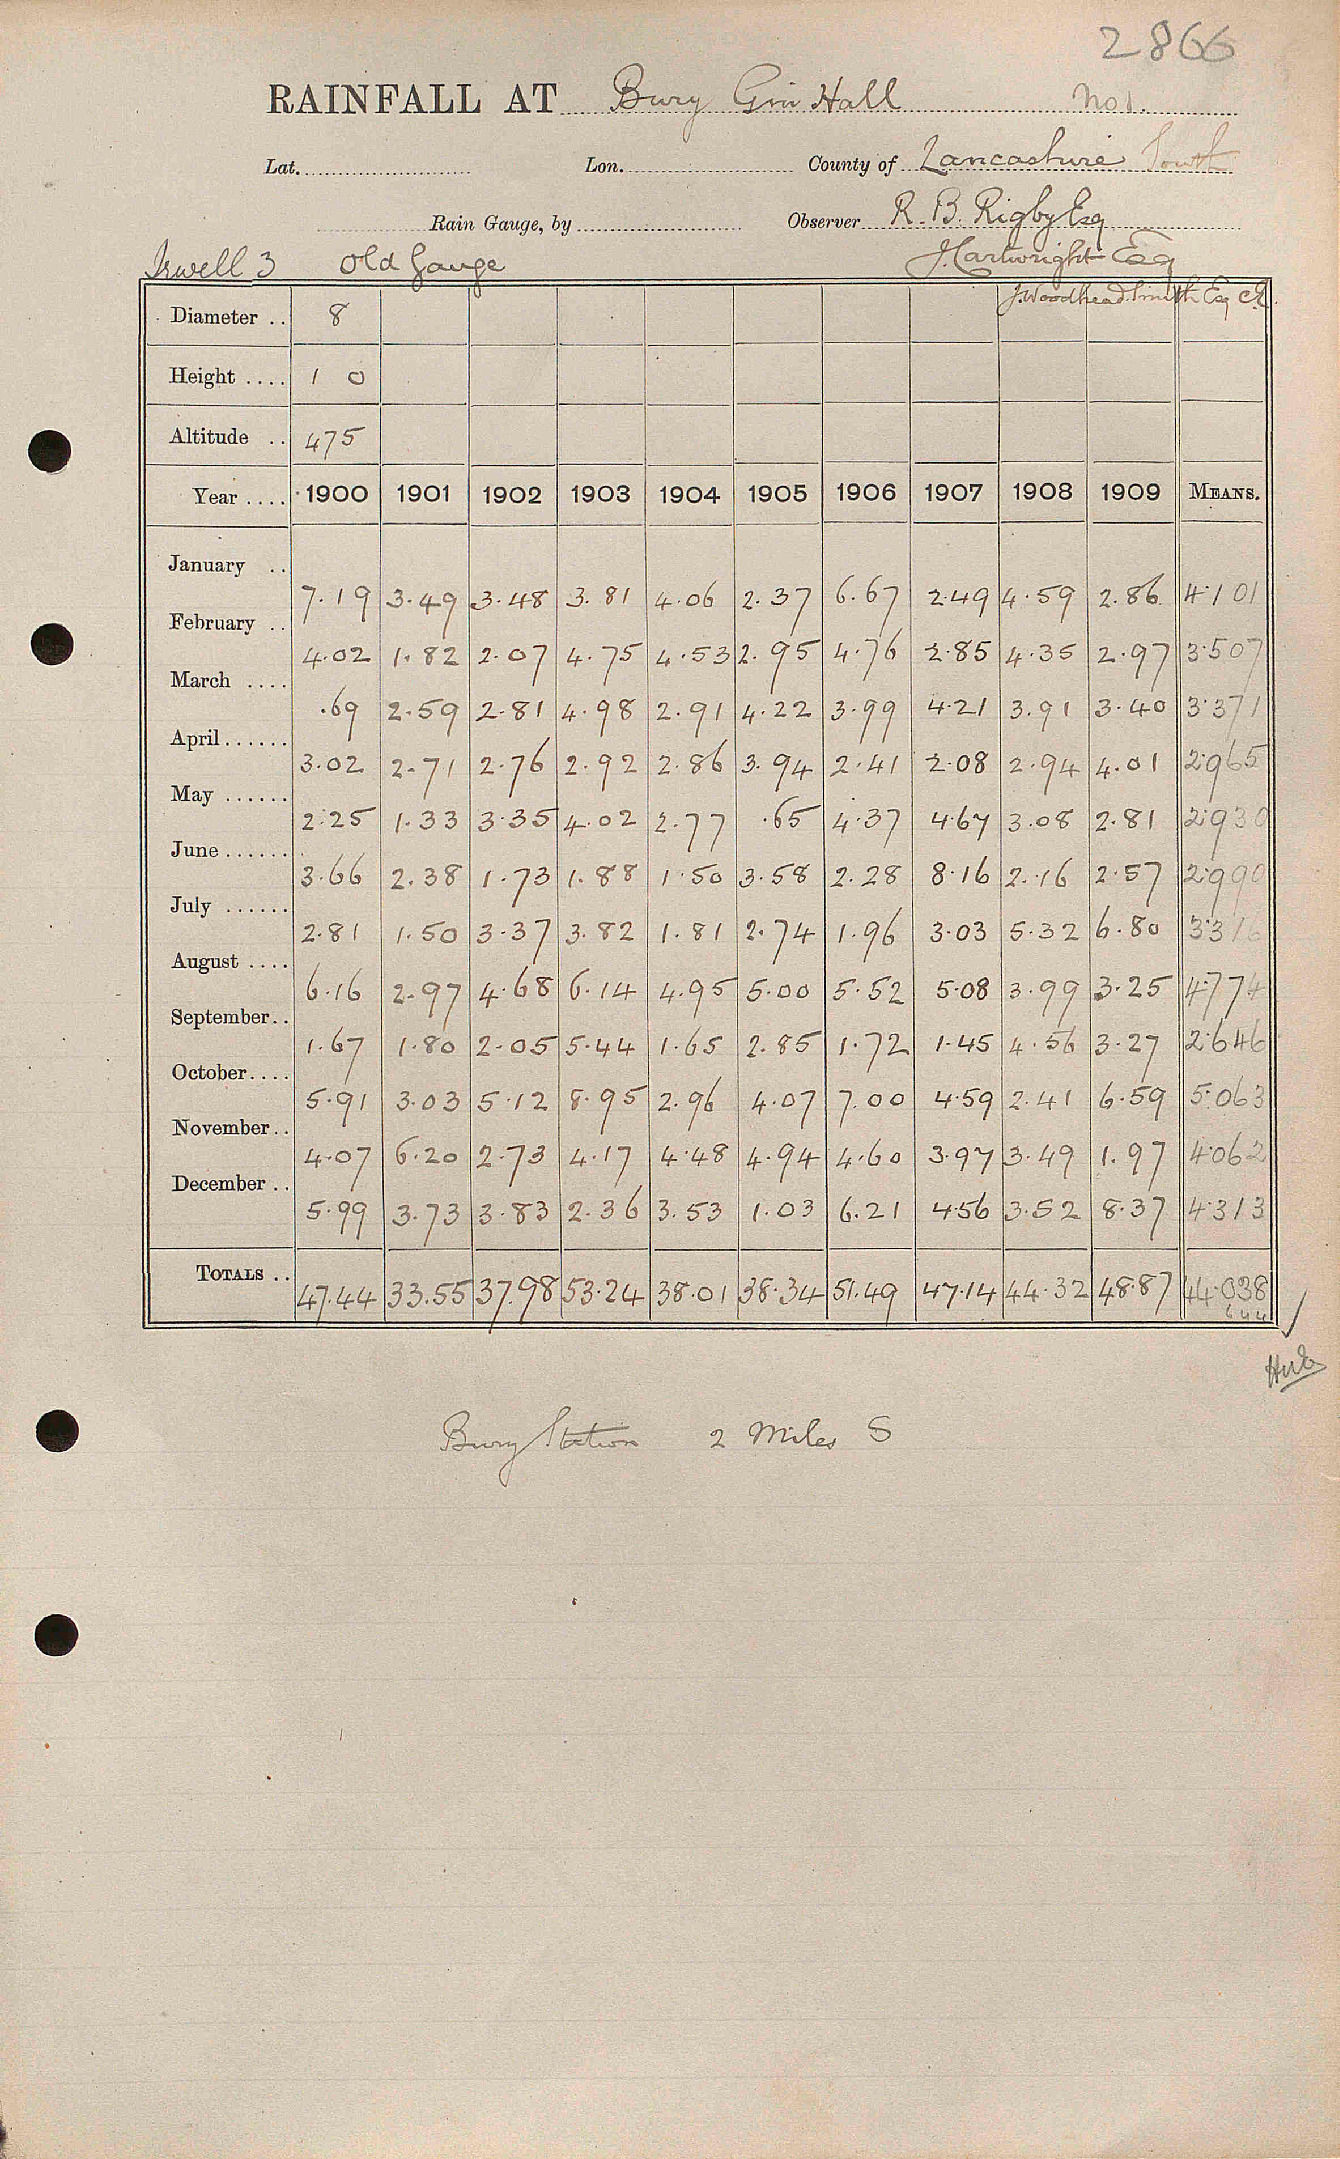 2866
RAINFALL AT Bury Gin Hall No 1.
Lat. Lon. County of Lancashire South
Rain Gauge, by Observer R. B. Rigby Esq
Irwell 3 Old Gauge J. Cartwright Esq
J. Woodhead Smith Esq CE
Diameter .. 8
Height .... 1 0
Altitude .. 475
Year .... 1900 1901 1902 1903 1904 1905 1906 1907 1908 1909 MEANS.
January .. 7.19 3.49 3.48 3.81 4.06 2.37 6.67 2.49 4.59 2.86 4.101
February .. 4.02 1.82 2.07 4.75 4.53 2.95 4.76 2.85 4.35 2.97 3.507
March .... .69 2.59 2.81 4.98 2.91 4.22 3.99 4.21 3.91 3.40 3.371
April ...... 3.02 2.71 2.76 2.92 2.86 3.94 2.41 2.08 2.94 4.01 2.965
May ...... 2.25 1.33 3.35 4.02 2.77 .65 4.37 4.67 3.08 2.81 2.930
June ...... 3.66 2.38 1.73 1.88 1.50 3.58 2.28 8.16 2.16 2.57 2.990
July ...... 2.81 1.50 3.37 3.82 1.81 2.74 1.96 3.03 5.32 6.80 3.316
August .... 6.16 2.97 4.68 6.14 4.95 5.00 5.52 5.08 3.99 3.25 4.774
September .. 1.67 1.80 2.05 5.44 1.65 2.85 1.72 1.45 4.56 3.27 2.646
October .... 5.91 3.03 5.12 8.95 2.96 4.07 7.00 4.59 2.41 6.59 5.063
November .. 4.07 6.20 2.73 4.17 4.48 4.94 4.60 3.97 3.49 1.97 4.062
December .. 5.99 3.73 3.83 2.36 3.53 1.03 6.21 4.56 3.52 8.37 4.313
TOTALS .. 47.44 33.55 37.98 53.24 38.01 38.34 51.49 47.14 44.32 48.87 44.038
Bury Station 2 Miles S